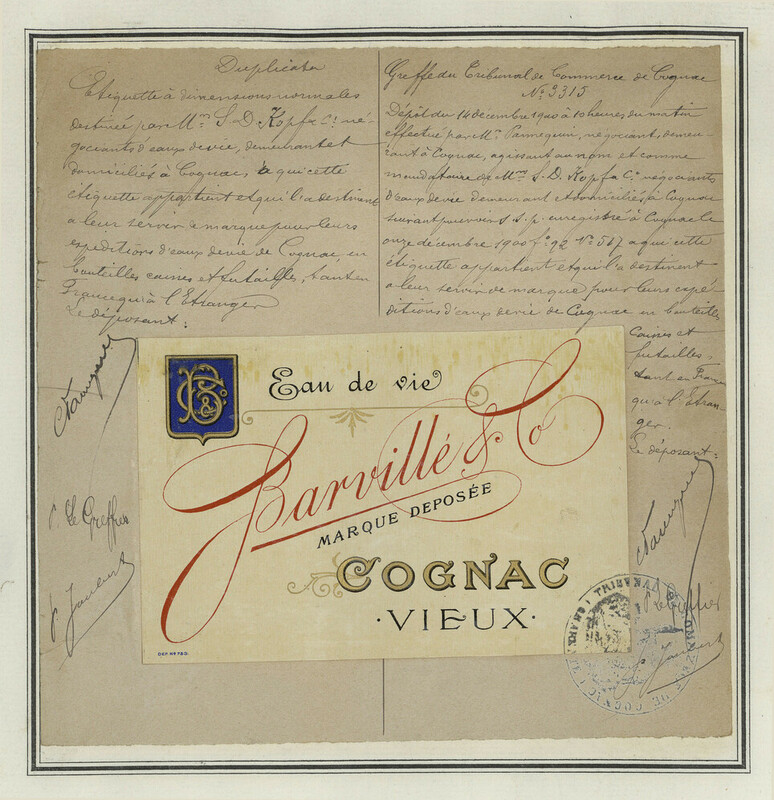 Duplicata
Etiquette à dimensions normales
destinée par Mrs S. D. Kopf & Cie né-
gociants d'eaux de vie, demeurant et
domiciliés à Cognac, à qui cette
étiquette appartient et qu'il a destinent
a leur servir de marque pour leurs
expéditions d'eaux de vie de Cognac, en
bouteilles caisses et futailles, tant en
France qu'à l'Etranger
Le déposant:
P. Le Greffier
Greffe du Tribunal de Commerce de Cognac
No 3315
Dépôt du 14 décembre 1900 à 10 heures du matin
effectué par Mr Pannequin, négociant, demeu-
rant à Cognac, agissant au nom et comme
mandataire de Mrs S. D. Kopf & Cie négociants
d'eaux de vie demeurant et domiciliés à Cognac
suivant pouvoir s.s.p. enregistré à Cognac le
onze décembre 1900 fo 92 No 567 a qui cette
étiquette appartient et qu'il a destinent
a leur servir de marque pour leurs expé-
ditions d'eaux de vie de Cognac en bouteilles
caisses et
futailles,
tant en France
qu'à l'Etran-
ger.
Le déposant:
Eau de vie
Barvillé & Co
MARQUE DEPOSÉE
COGNAC
·VIEUX·
DEP. No 790